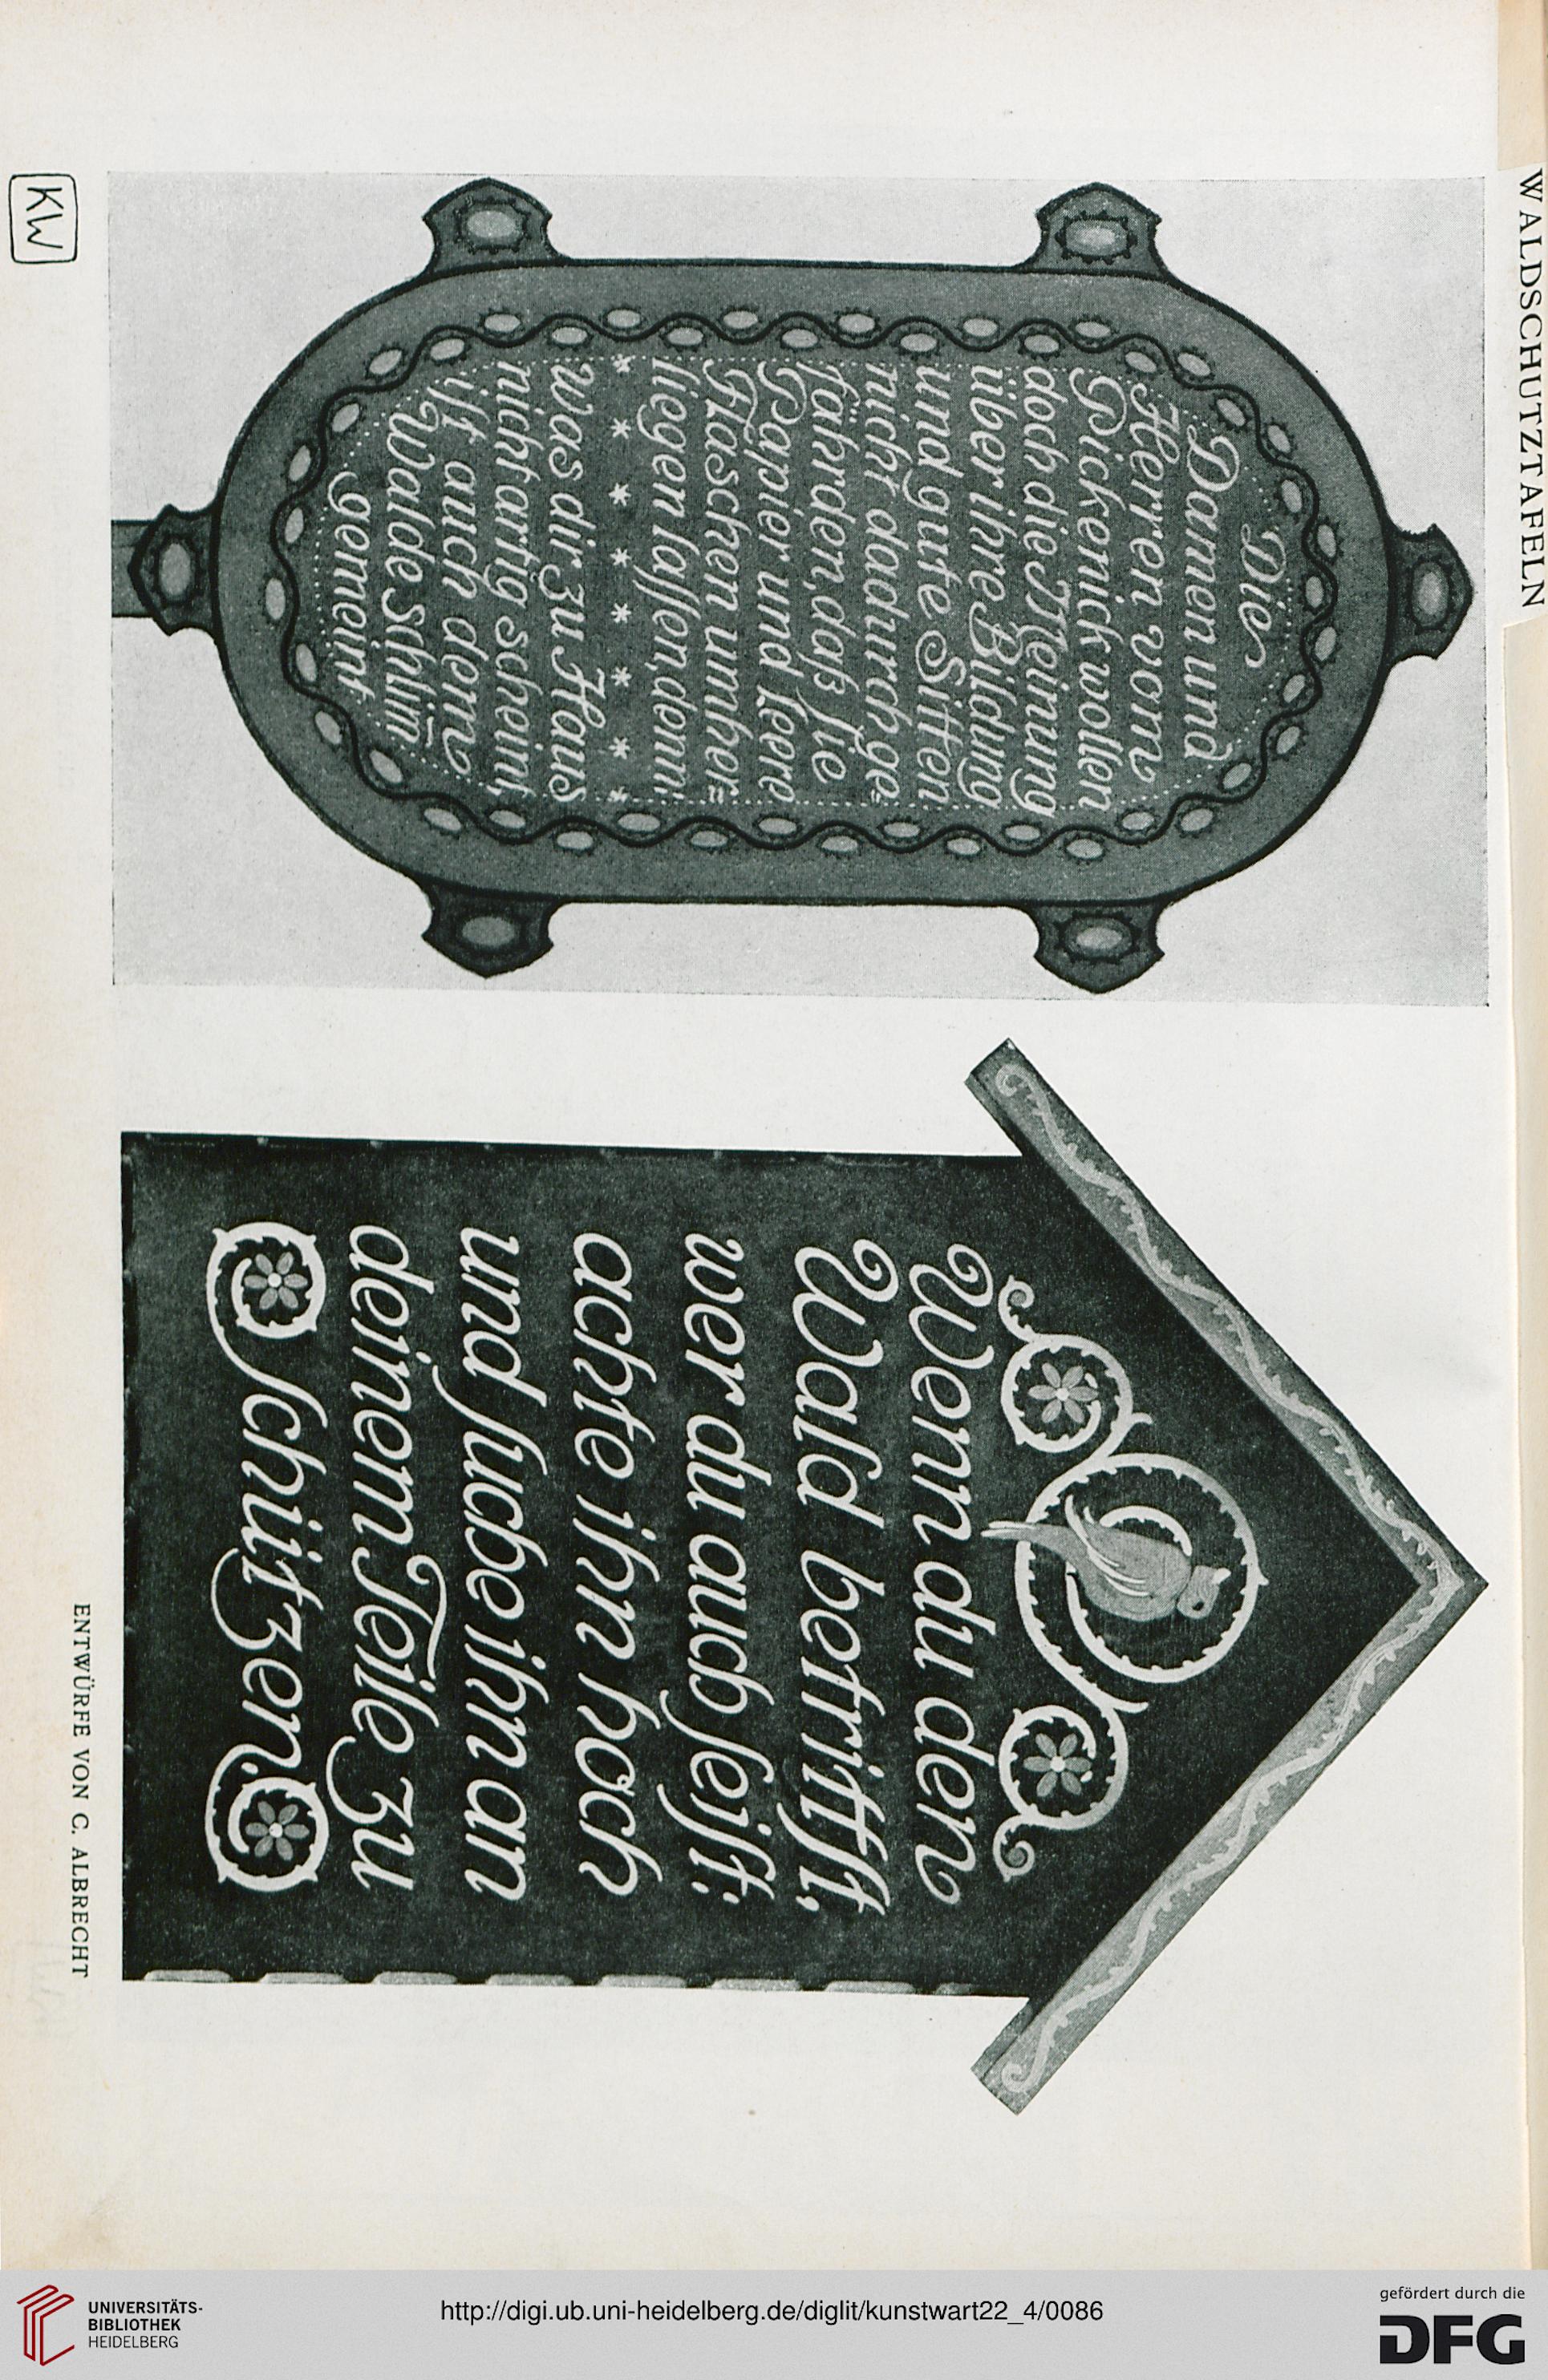 WALDSCHUTZTAFELN
Die
Damen und
Herren vom
Pickenick wollen
doch die Meinung
über ihre Bildung
und gute Sitten
nicht dadurch ge=
fährden, daß ſie
Papier und leere
Flaschen umher=
liegen laſſen, denn:
* * * * * * *
was dir zu Haus
nicht artig scheint,
iſt auch dem
Walde schlim̄
gemeint.
Wenn du den
Wald betrittſt,
wer du auch ſeiſt:
achte ihn hoch
und ſuche ihn an
deinem Teile zu
ſchützen.
KW
ENTWÜRFE VON C. ALBRECHT
UNIVERSITÄTS-
BIBLIOTHEK
HEIDELBERG
http://digi.ub.uni-heidelberg.de/diglit/kunstwart22_4/0086
gefördert durch die
DFG